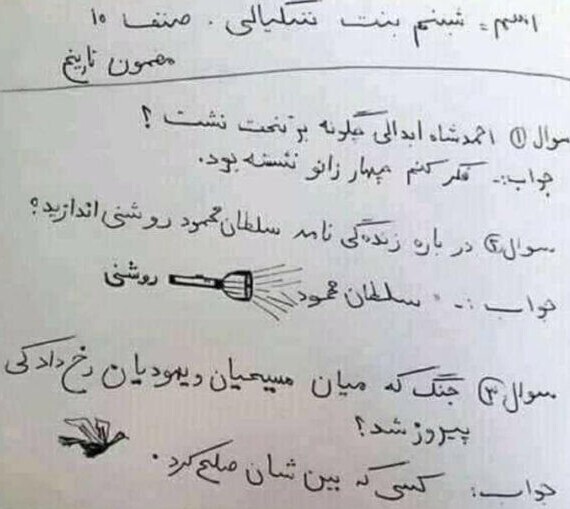 اسم = شبنم بنت شگیالی . صنف ۱۰
مضمون تاریخ
سوال ① احمدشاه ابدالی چگونه بر تخت نشت ؟
جواب:- فکر کنم چهار زانو نشسته بود.
سوال ② در باره زندگی نامه سلطان محمود روشنی اندازید؟
جواب :- سلطان محمود روشنی
سوال ③ جنگ که میان مسیحیان و یهودیان رخ داد کی
پیروز شد؟
جواب: کسی که بین شان صلح کرد .